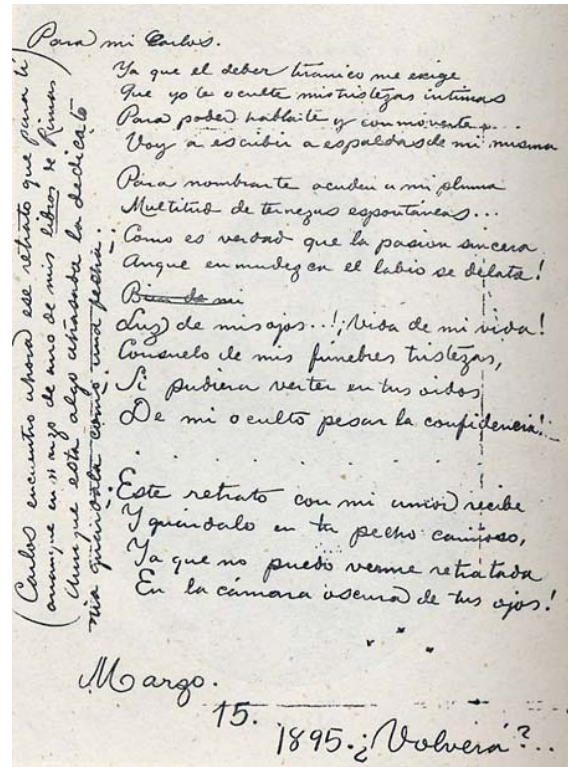 Para mi Carlos.
Ya que el deber tiránico me exige
Que yo te oculte mis tristezas íntimas
Para poder hablarte y conmoverte....
Voy a escribir a espaldas de mi misma
Para nombrarte acuden a mi pluma
Multitud de ternezas espontáneas...
Como es verdad que la pasion sincera
Aunque enmudezca el labio se delata!
mi
Luz de mis ojos...! ¡Vida de mi vida!
Consuelo de mis fúnebres tristezas,
Si pudiera verter en tus oidos
De mi oculto pesar la confidencia!
Este retrato con mi amor recibe
Y guárdalo en tu pecho cariñoso,
Ya que no puedo verme retratada
En la cámara oscura de tus ojos!
Marzo.
15.
1895. ¿Volverá?..
(Carlos encuentro ahora ese retrato que para tí
en uno de mis libros de Rimas
Aunque esta algo la dedicato
ria guárdala como una fecha.